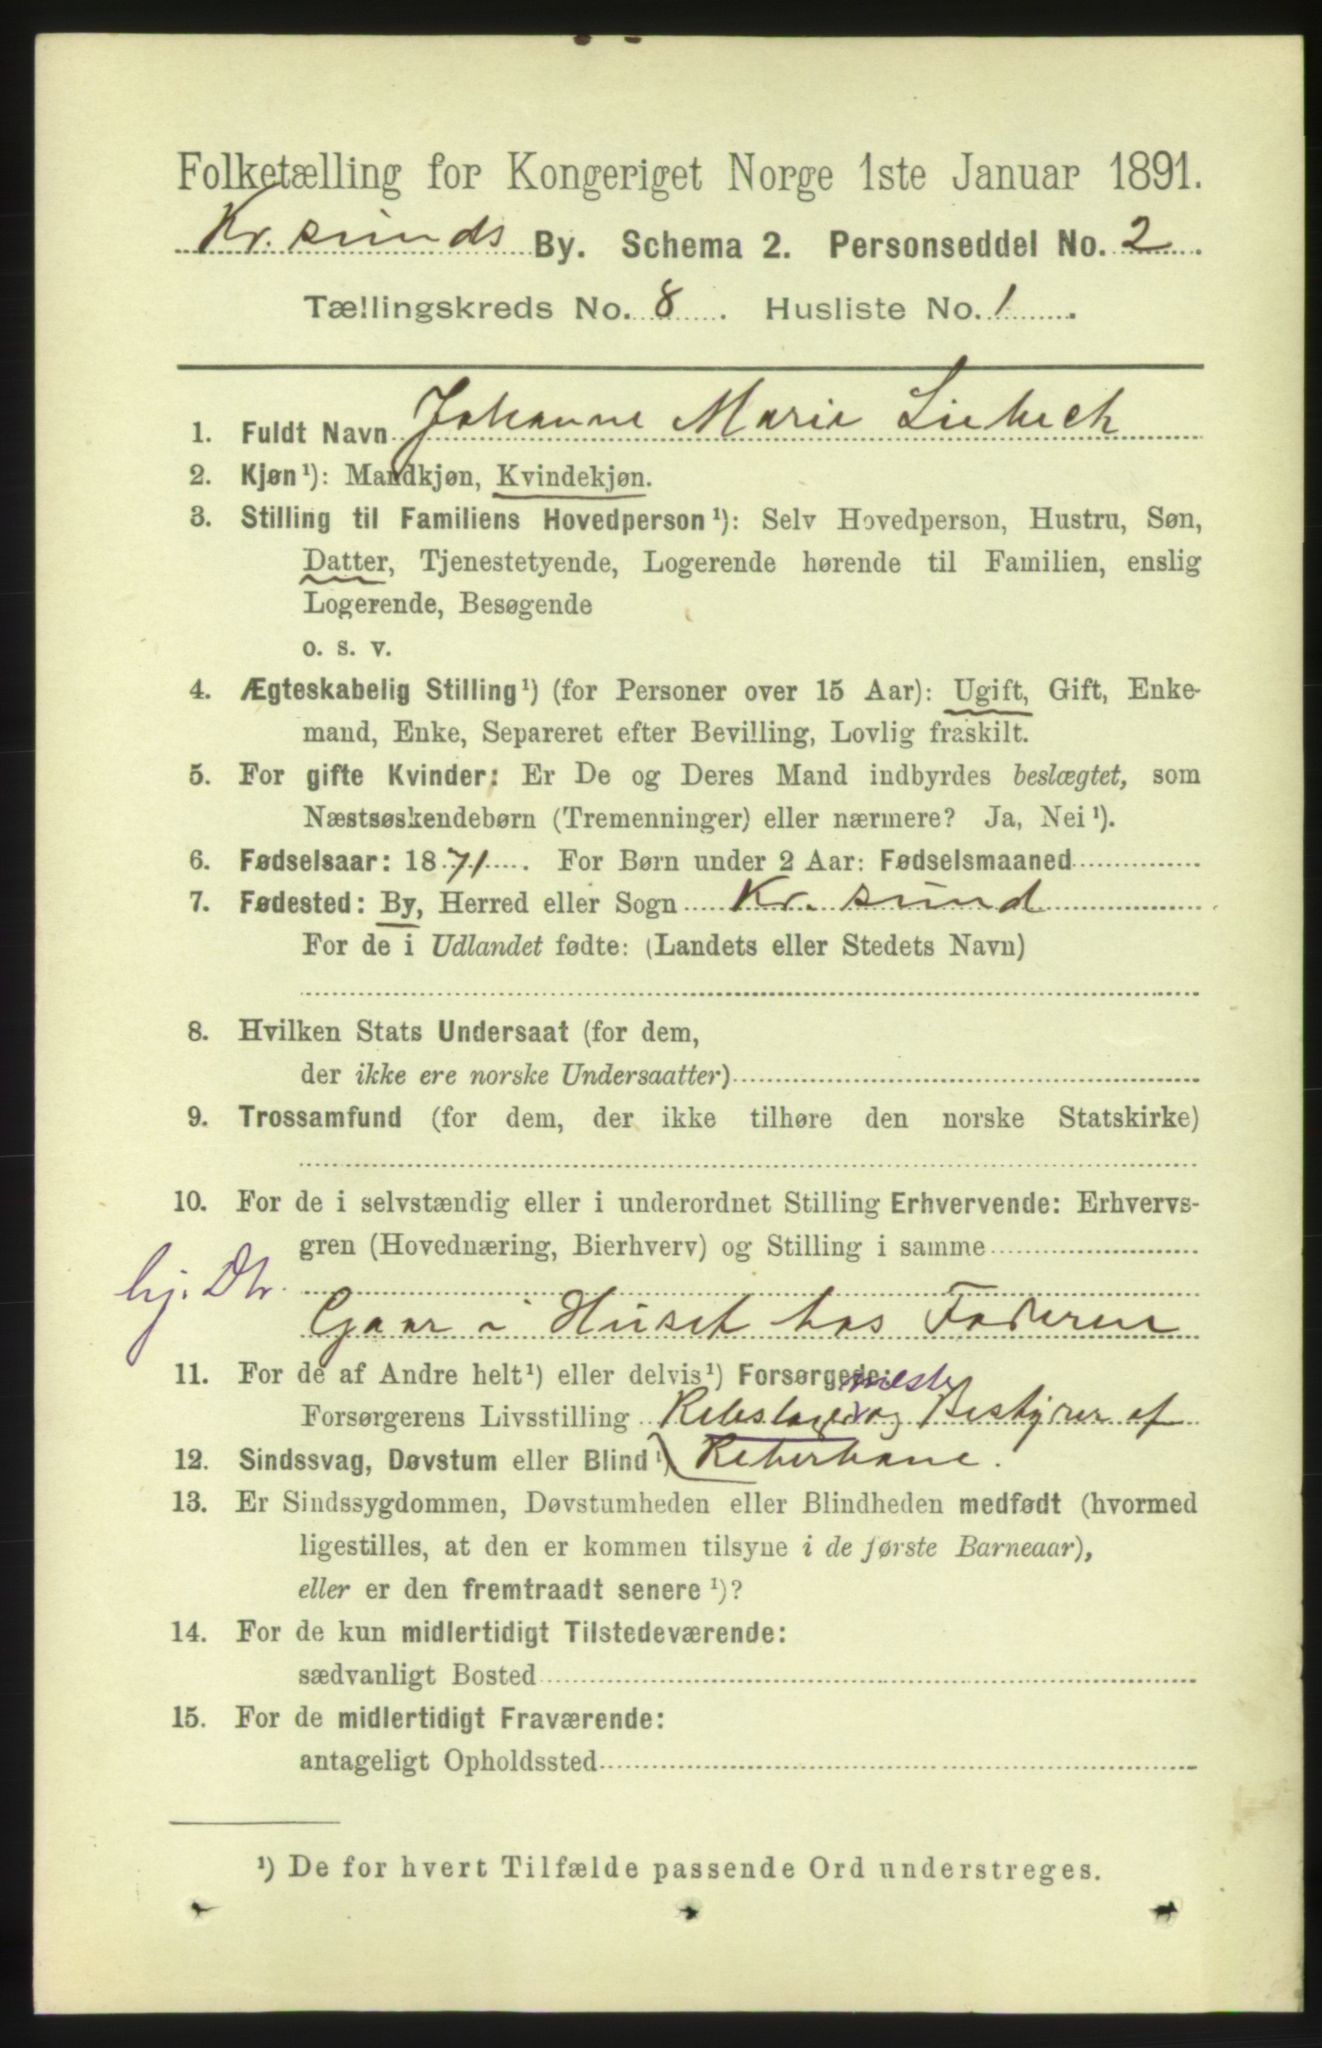 Folketælling for Kongeriget Norge 1ste Januar 1891.
Kr. sunds By. Schema 2. Personseddel No. 2
Tællingskreds No. 8. Husliste No. 1.
1. Fuldt Navn Johanne Marie Liebech
2. Kjøn¹): Mandkjøn, Kvindekjøn.
3. Stilling til Familiens Hovedperson¹): Selv Hovedperson, Hustru, Søn,
Datter, Tjenestetyende, Logerende hørende til Familien, enslig
Logerende, Besøgende
o. s. v.
4. Ægteskabelig Stilling¹) (for Personer over 15 Aar): Ugift, Gift, Enke-
mand, Enke, Separeret efter Bevilling, Lovlig fraskilt.
5. For gifte Kvinder: Er De og Deres Mand indbyrdes beslægtet, som
Næstsøskendebørn (Tremenninger) eller nærmere? Ja, Nei¹).
6. Fødselsaar: 1871. For Børn under 2 Aar: Fødselsmaaned
7. Fødested: By, Herred eller Sogn Kr. sund
For de i Udlandet fødte: (Landets eller Stedets Navn)
8. Hvilken Stats Undersaat (for dem,
der ikke ere norske Undersaatter)
9. Trossamfund (for dem, der ikke tilhøre den norske Statskirke)
10. For de i selvstændig eller i underordnet Stilling Erhvervende: Erhvervs-
gren (Hovednæring, Bierhverv) og Stilling i samme
hj. Dtr.
Gaar i Huset hos Faderen
11. For de af Andre helt¹) eller delvis¹) Forsørgede:
Forsørgerens Livsstilling Rebslager og Bestyrer af
12. Sindssvag, Døvstum eller Blind¹) Reberbane.
13. Er Sindssygdommen, Døvstumheden eller Blindheden medfødt (hvormed
ligestilles, at den er kommen tilsyne i de første Barneaar),
eller er den fremtraadt senere¹)?
14. For de kun midlertidigt Tilstedeværende:
sædvanligt Bosted
15. For de midlertidigt Fraværende:
antageligt Opholdssted
¹) De for hvert Tilfælde passende Ord understreges.